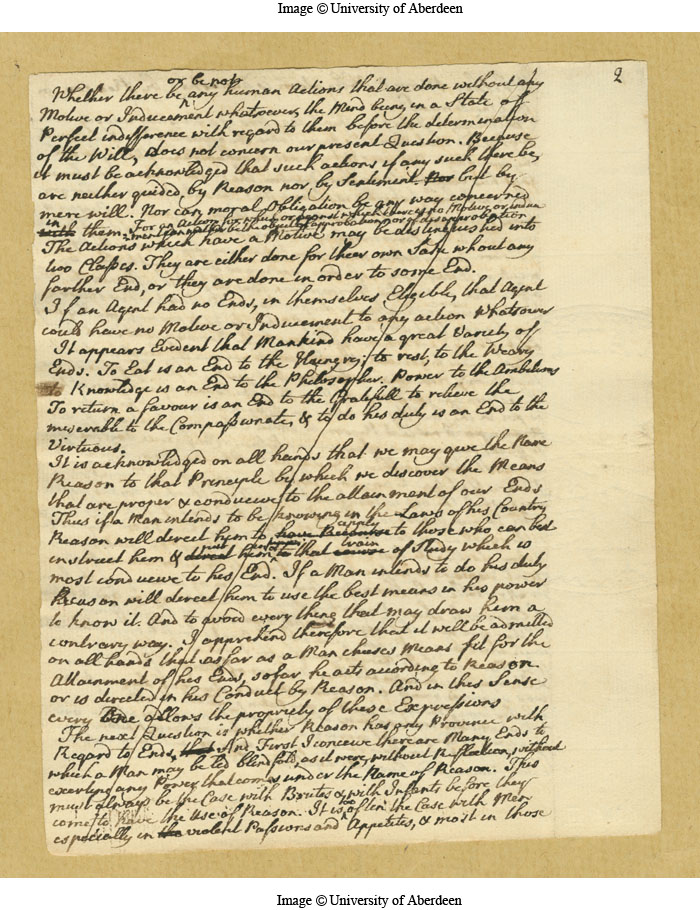 Image © University of Aberdeen
2
or be not
Whether there be any human Actions that are done without any
Motive or Inducement whatsoever, the Mind being in a State of
Perfect indifference with regard to them before the determination
of the Will, does not concern our present Question. Because
it must be acknowledged that such actions if any such there be,
are neither guided by Reason nor by Sentiment. Nor but by
mere will. Nor can moral Obligation be any way concerned
in with them. For an Action for which or against which there is no Motive or Induce
ment can neither be the object of approbation nor of disapprobation
The Actions which have a Motive may be distinguished into
two Classes. They are either done for their own Sake without any
farther End, or they are done in order to some End.
If an Agent had no Ends, in themselves Eligible, that Agent
could have no Motive or Inducement to any action whatsoever
It appears Evident that Mankind have a great Variety of
Ends. To Eat is an End to the Hungry; to rest, to the Weary
to Knowledge is an End to the Philosopher. Power to the Ambitious
To return a favour is an End to the Gratefull to relieve the
miserable to the Compassionate, & to do his duty is an End to the
Virtuous.
It is acknowledged on all hands that we may give the Name
Reason to that Principle by which we discover the Means
that are proper & conducive to the attainment of our Ends
Thus if a Man intends to be knowing in the Laws of his Country
apply
Reason will direct him to have Recourse to those who can best
train
instruct him & direct him to that course of Study which is
most conducive to his End. If a Man intends to do his duty
Reason will direct him to use the best means in his power
to know it. And to avoid every thing that may draw him a
contrary way. I apprehend therefore that it will be admitted
on all hands that as far as a Man chuses Means fit for the
Attainment of his Ends, so far he acts according to Reason
or is directed in his Conduct by Reason. And in this Sense
every One allows the propriety of these Expressions
The next Question is whether Reason has any Province with
Regard to Ends, And First I conceive there are Many Ends to
which a Man may be led blindfold, as it were, without Reflection, without
exerting any Power that comes under the Name of Reason. This
must always be the Case with Brutes & with Infants before they
come to have the Use of Reason. It is too often the Case with Men
especially in the violent Passions and Appetites, & most in those
Image © University of Aberdeen